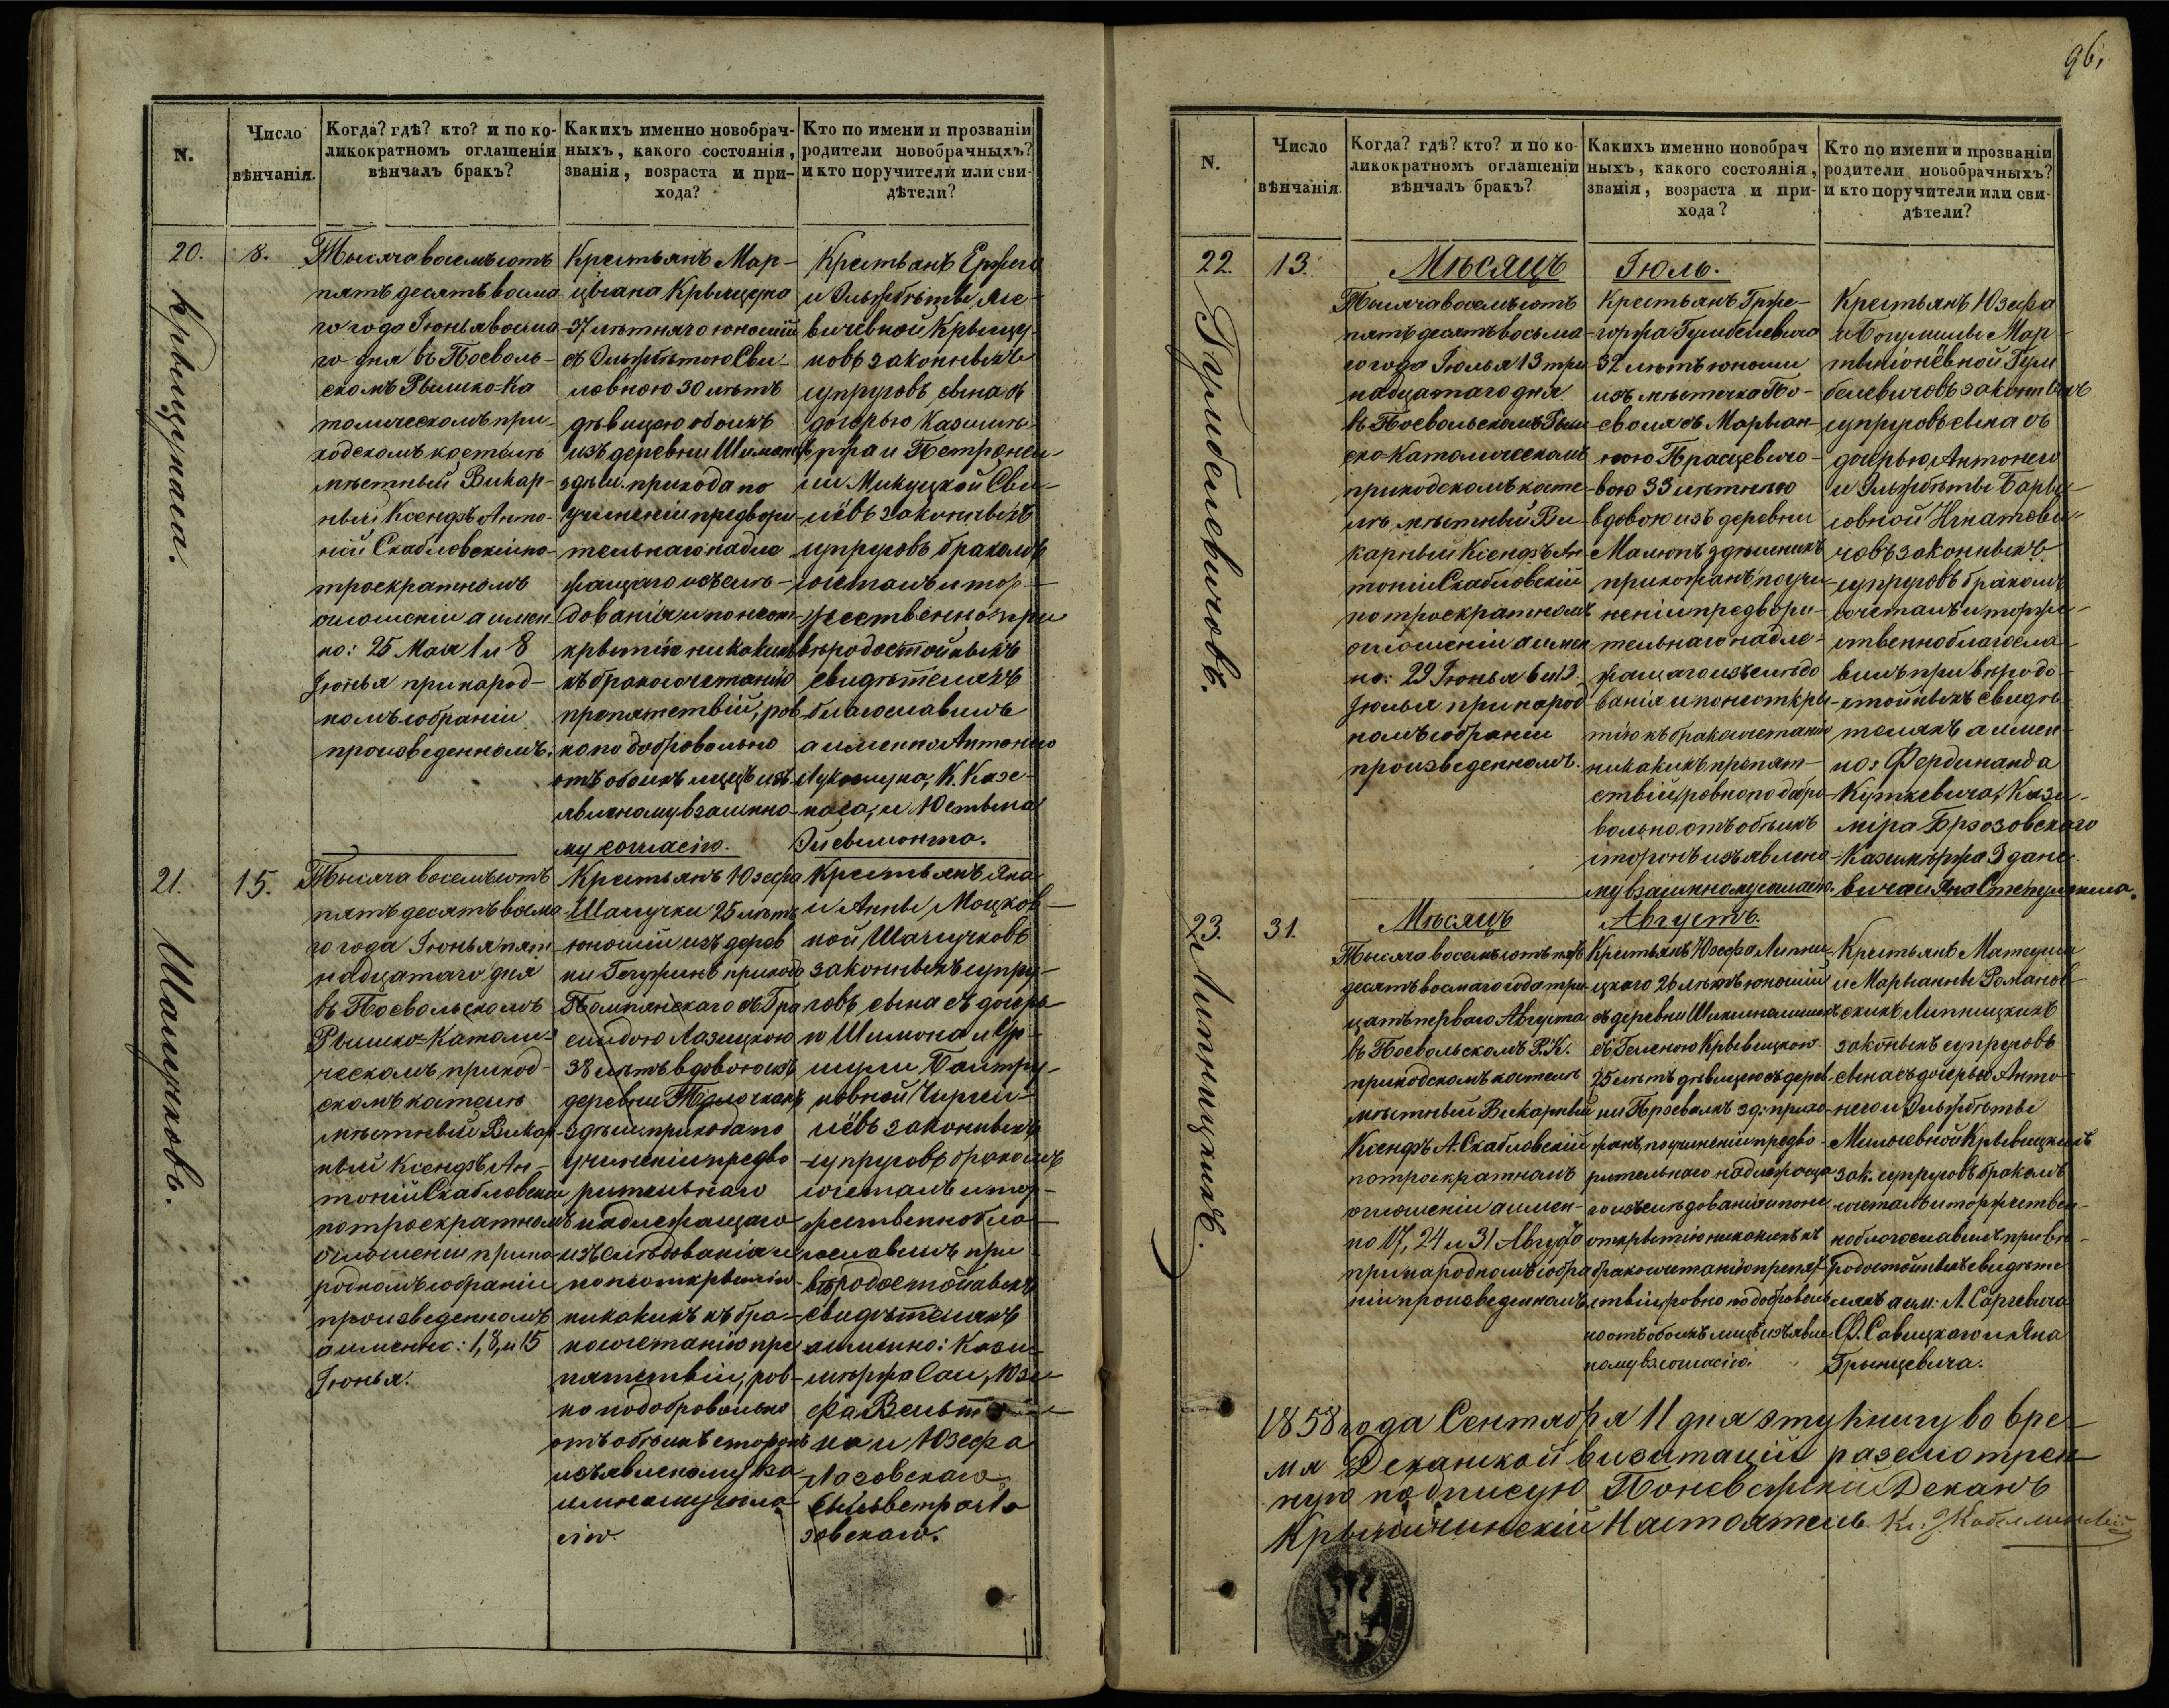 96.
N.
Число
вѣнчанія.
Когда? гдѣ? кто? и по ко-
ликократномъ оглашеніи
вѣнчалъ бракъ?
Какихъ именно новобрач-
ныхъ, какого состоянія,
званія, возраста и при-
хода?
Кто по имени и прозваніи
родители новобрачныхъ?
и кто поручители или сви-
дѣтели?
20.
8.
Крыщукаса.
Тысяча восемьсотъ
пятьдесятъ восьма-
го года Іюнья восьма-
го дня въ Посволь-
скомъ Рымско-Ка
толическомъ при-
ходскомъ костелѣ
мѣстный Викар-
ный Ксендзъ Анто-
ній Скабловскій по
троекратномъ
оглошеніи а имен
но: 25 Мая 1 и 8
Іюнья при народ-
номъ собраніи
произведенномъ.
Крестьянъ Мар-
цыана
37 лѣтняго юношій
съ Эльжбѣтою Сви-
ловною 30 лѣтъ
дѣвицею обоихъ
изъ деревни
здѣш. прихода по
учиненіи предвори
тельнаго надле
жащаго изслѣ-
дованія и по неот-
крытіи никакихъ
къ бракосочетанію
препятствій, рав
но по добровольно
отъ обоихъ лицъ изъ
явленому взаимно-
му согласію.
Крестьянъ Ержего
и Эльжбѣты
законныхъ
супруговъ сына съ
дочерью Казимѣ-
ржа и Петронел-
ли Микуцкой Сви-
лёвъ законныхъ
супруговъ бракомъ
сочеталъ и тор-
жественно при
вѣродостойныхъ
свидѣтеляхъ
благославилъ
а именно Антонего
21.
15.
Шалучковъ.
Тысяча восемьсотъ
пятьдесятъ восма
го года Іюнья пят
надцатаго дня
въ Посвольскомъ
Рымско-Католи-
ческомъ приход-
скомъ костелѣ
мѣстный Викар-
ный Ксендзъ Ан-
тоній Скабловскій
по троекратномъ
оглошеніи при на
родномъ собраніи
произведенномъ
а именно: 1, 8, и 15
Іюнья.
Крестьянъ Юзефа
Шалучки 25 лѣтъ
юношій изъ дерев
ни прихода
Помпянскаго съ Гра
сылдою Лазицкою
38 лѣтъ вдовою изъ
деревни
здѣш. прихода по
учиненіи предво
рительнаго
надлежащаго
изслѣдованія и
по неоткрытіи
никакихъ къ бра-
косочетанію пре
пятствій, рав-
но по добровольно
отъ обоихъ сторонъ
изъявленому вза
имному согла
сію.
Крестьянъ Яна
и Анны Моцков-
ной Шалучковъ
законныхъ супру-
говъ сына съ дочерь
ю Шимона и Ур-
шули
законныхъ
супруговъ бракомъ
сочеталъ и тор-
жественно бла-
гославилъ при
вѣродостойныхъ
свидѣтеляхъ
а именно: Кази-
мѣржа
на и Юзефа
Лазовскаго
Сыльвестра Ла
зовскаго.
N.
Число
вѣнчанія.
Когда? гдѣ? кто? и по ко-
ликократномъ оглашеніи
вѣнчалъ бракъ?
Какихъ именно новобрач
ныхъ, какого состоянія,
званія, возраста и при-
хода?
Кто по имени и прозваніи
родители новобрачныхъ?
и кто поручители или сви-
дѣтели?
22.
13.
Гумбелевичовъ.
Мѣсяцъ Іюль.
Тысяча восемьсотъ
пятьдесятъ восьма
го года Іюлья 13 три
надцатаго дня
въ Посвольскомъ Рым
ско-Католическомъ
приходскомъ косте-
лѣ мѣстный Ви
карный Ксендзъ Ан
тоній Скабловскій
по троекратномъ
оглошеніи а имен
но: 29 Іюнья 6 и 13.
Іюлья при народ
номъ собраніи
произведенномъ.
Крестьянъ Грже-
горжа Гумбелевича
32 лѣтъ юноши
изъ мѣстечка По-
сволясъ Марыан-
ною Прасцевичо-
вою 33 лѣтнею
вдовою изъ деревни
здѣшнихъ
прихожанъ по учи
неніи предвори-
тельнаго надле-
жащаго изслѣдо
ванія и по неоткры
тію къ бракосочетанію
никакихъ препят-
ствій, ровно по добро
вольно отъ обѣихъ
сторонъ изъявлено
му взаимному согласію.
Крестьянъ Юзефа
и Богумилы Мар-
Гум
белевичовъ законныхъ
супруговъ сына съ
дочерью Антонего
и Эльжбѣты
Игнатови-
човъ законныхъ
супруговъ бракомъ
сочеталъ и торже-
ственно благосла-
вилъ при вѣродо-
стойныхъ свидѣ-
теляхъ а имен-
но: Фердинанда
Куткевича, Кази-
мѣра Брзозовскаго
Казимѣржа Здане-
вича и Яна
23.
31.
Липницкихъ.
Мѣсяцъ Августъ.
Тысяча восемьсотъ пять
десятъ восмаго года три
цать перваго Августа
въ Посвольскомъ Р. К.
приходскомъ костелѣ
мѣстный Викарный
Ксендзъ А. Скабловскій
по троекратномъ
оглошеніи а имен-
но 17, 24 и 31 Августа
при народномъ собра
ніи произведенномъ
Крестьянъ Юзефа Липни-
цкаго 26 лѣтъ юношій
съ деревни
съ Геленою Крывицкою
25 лѣтъ дѣвицею съ дерев-
ни зд. прихо-
жанъ, по учиненіи предво-
рительнаго надлежаща
го изслѣдованія и по не
открытію никакихъ къ
бракосочетанію препят
ствій, ровно по добровол
но отъ обоихъ лицъ изъявле
ному вз. согласію.
Крестьянъ Матеуша
и Марыанны Романов-
скихъ Липницкихъ
законныхъ супруговъ
сына съ дочерью Анто-
него и Эльжбѣты
Крывицкихъ
зак. супруговъ бракомъ
сочеталъ и торжествен-
но благославилъ при вѣ-
родостойныхъ свидѣте
ляхъ а им: Л. Саргевича
Ф. Савицкаго и Яна
Грынцевича.
1858 года Сентября 11 дня эту книгу во вре-
мя Деканской визитаціи разсмотрен-
ную подписую Поневѣжскій Деканъ
Настоятель